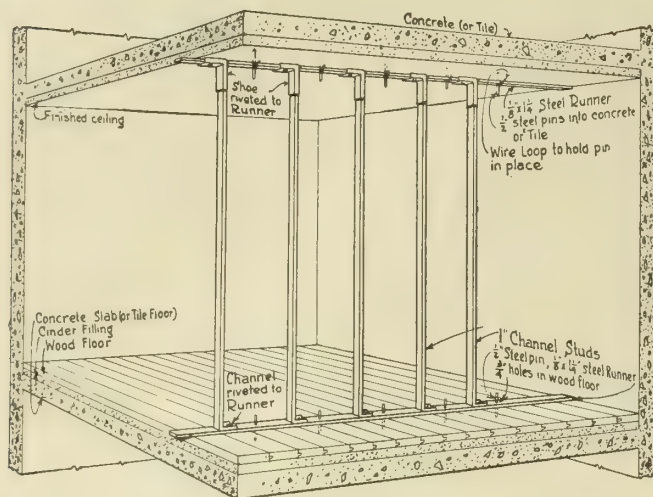 Concrete (or Tile)
Shoe
riveted to
Runner
Finished ceiling
1/8" x 1 1/4" Steel Runner
1/2" steel pins into concrete
or Tile
Wire Loop to hold pin
in place
Concrete Slab (or Tile Floor)
Cinder Filling
Wood Floor
Channel
riveted to
Runner
1" Channel Studs
1/2" Steel pin, 1/8" x 1 1/4" steel Runner
3/4" holes in wood floor